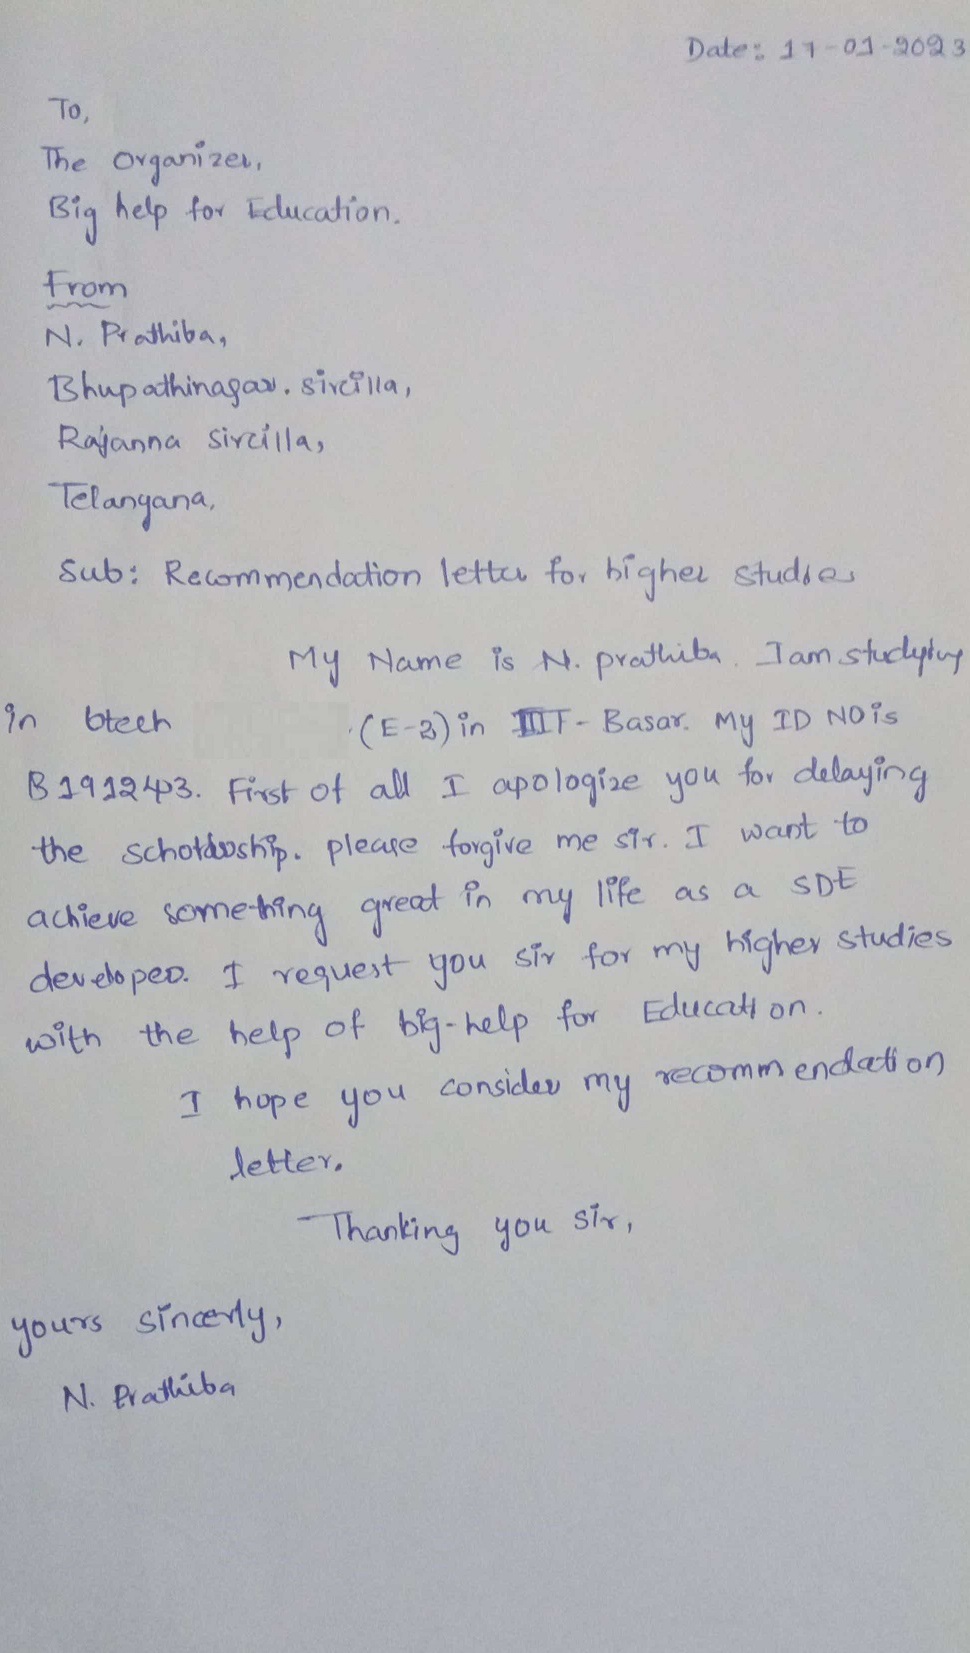 Date: 17-01-2023
To,
The Organizer,
Big help for Education.
From
N. Prathiba,
Bhupathinagar. Sircilla,
Rajanna Sircilla,
Telangana.
Sub: Recommendation letter for higher studies
My Name is N. prathiba. I am studying
in btech (E-3) in IIIT- Basar. My ID NO is
B191243. First of all I apologize you for delaying
the scholarship. please forgive me sir. I want to
achieve something great in my life as a SDE
developer. I request you sir for my higher studies
with the help of big-help for Education.
I hope you consider my recommendation
letter.
Thanking you sir,
yours sincerly,
N. Prathiba